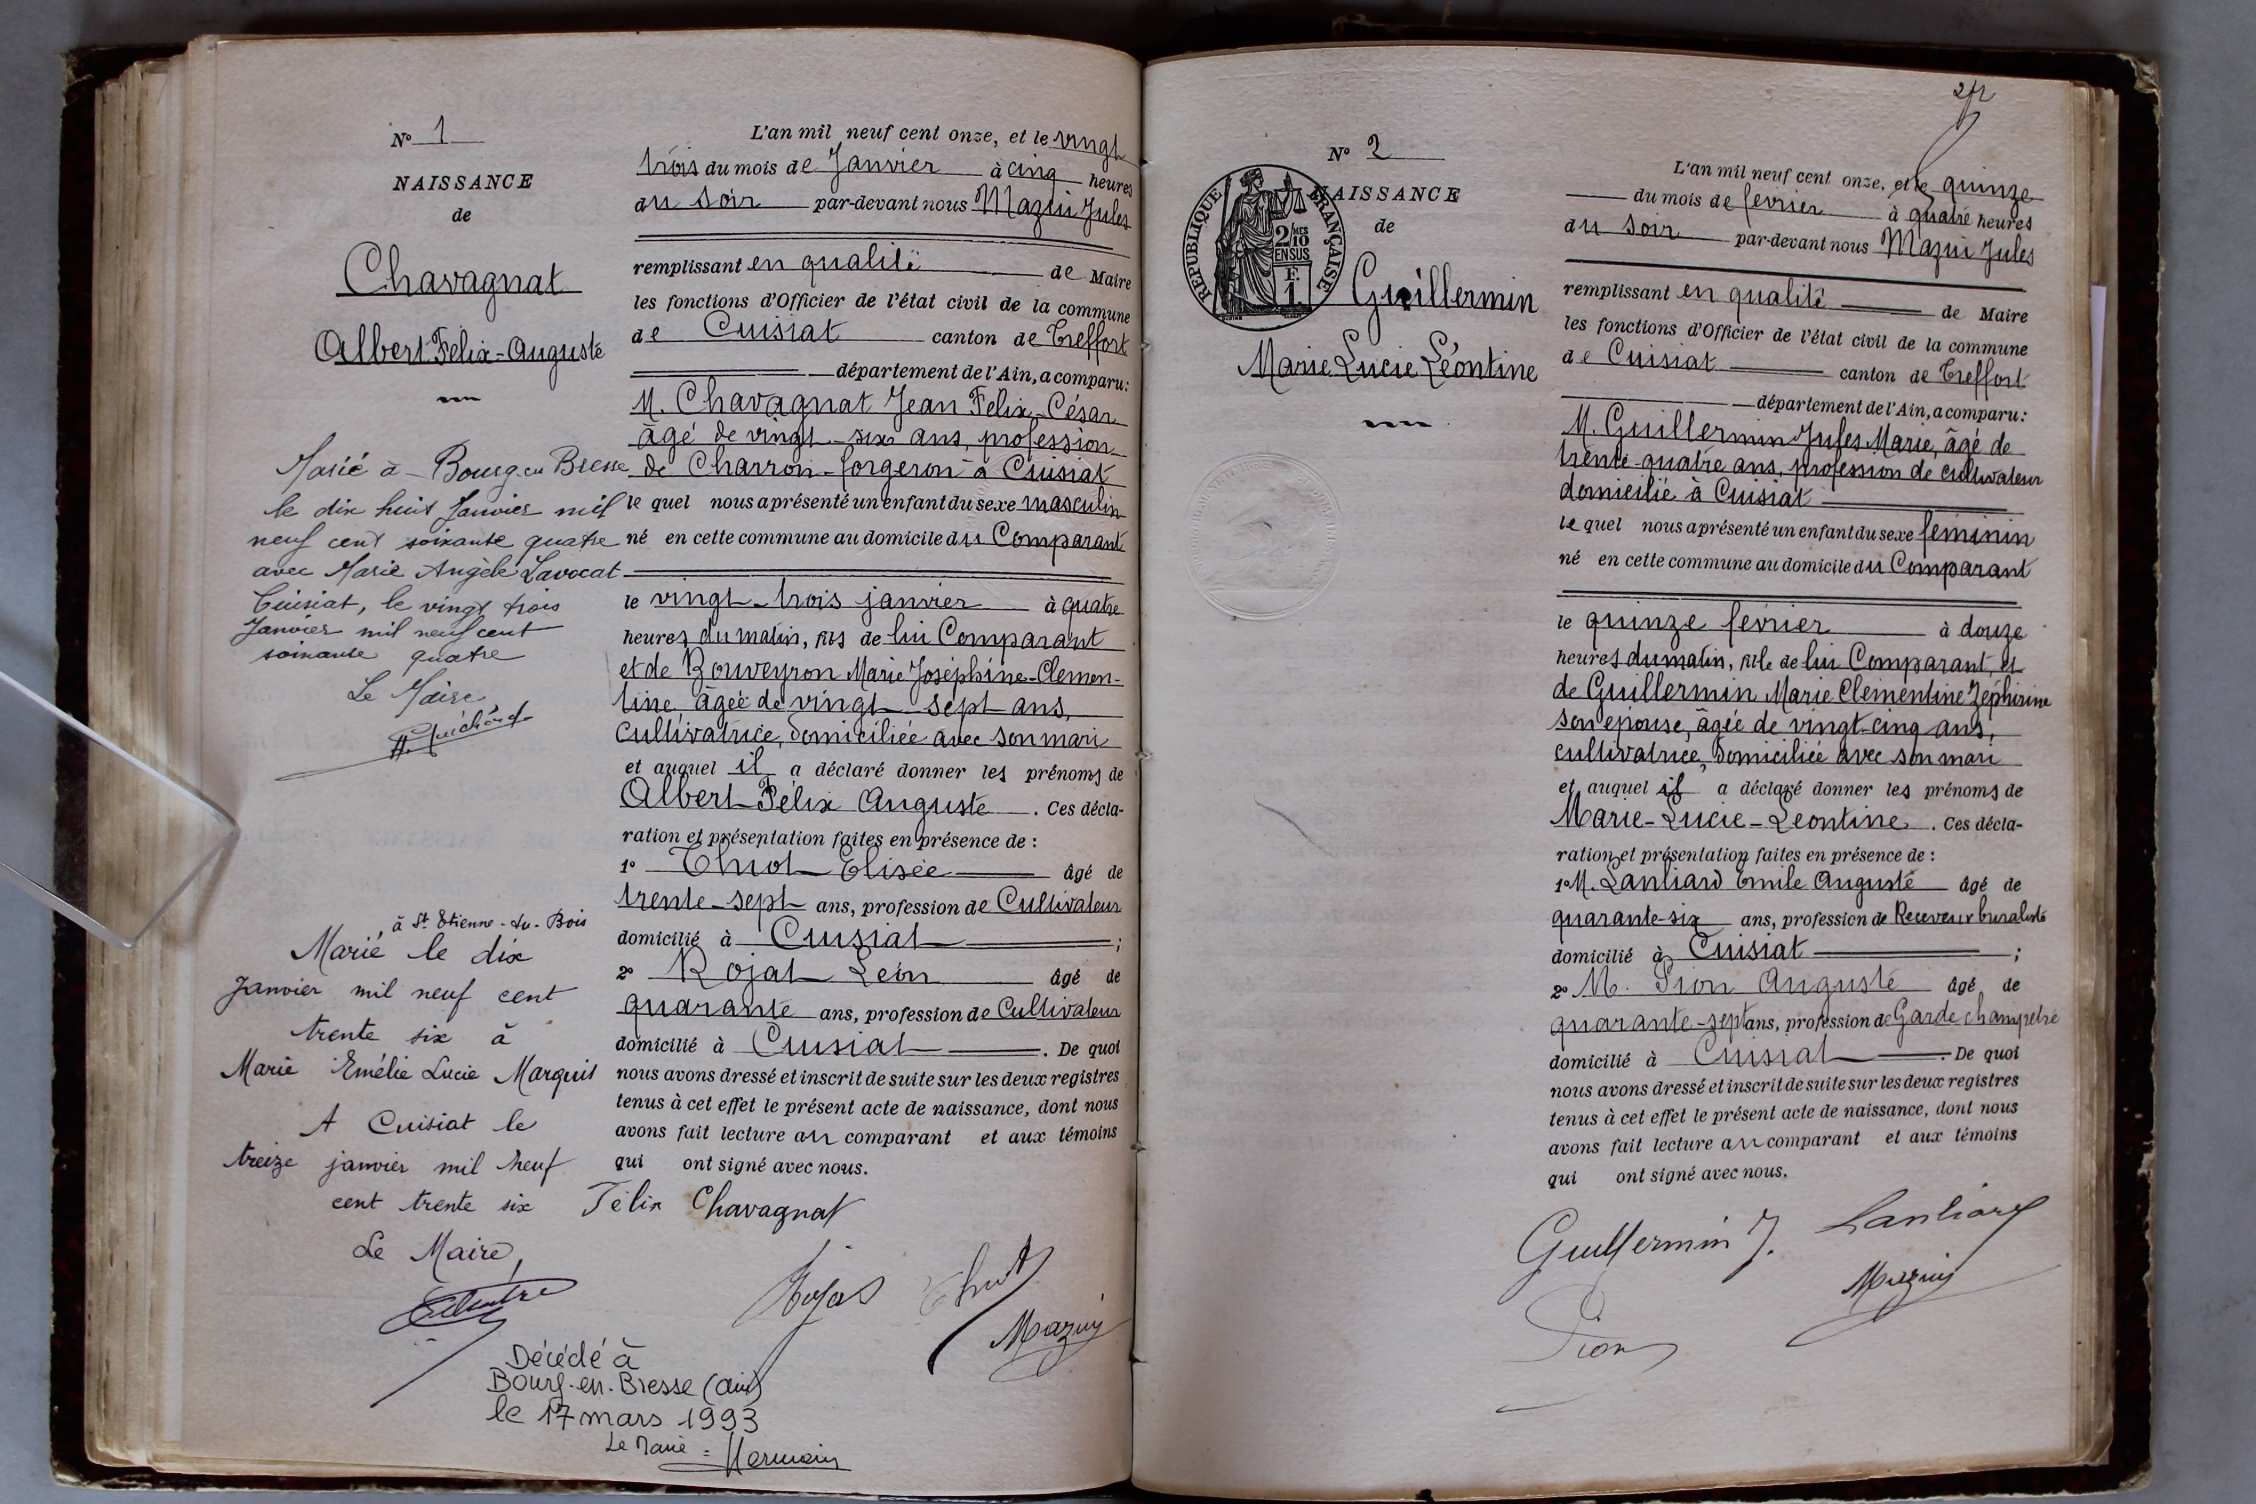 N° 1
NAISSANCE
de
Chavagnat
Albert-Felix-Auguste
Marié à Bourg en Bresse
le dix huit Janvier mil
neuf cent soixante quatre
avec Marie Angèle Lavocat
Cuisiat, le vingt trois
Janvier mil neuf cent
soixante quatre
Le Maire
à St Etienne-du-Bois
Marié le dix
Janvier mil neuf cent
trente six à
Marie Emélie Lucie Marquis
A Cuisiat le
treize janvier mil neuf
cent trente six
Le Maire,
Décédé à
Bourg-en-Bresse (ain)
le 17 mars 1993
Le Maire =
L'an mil neuf cent onze, et le vingt
trois du mois de Janvier à cinq heures
du soir par-devant nous Mazui Jules
remplissant en qualité de Maire
les fonctions d'Officier de l'état civil de la commune
de Cuisiat canton de Treffort
département de l'Ain, a comparu:
M. Chavagnat Jean Felix-César
âgé de vingt-six ans, profession
de Charron-forgeron à Cuisiat
le quel nous a présenté un enfant du sexe masculin
né en cette commune au domicile du Comparant
le vingt-trois janvier à quatre
heures du matin, fils de lui Comparant
et de Bouveyron Marie Joséphine-Clemen-
tine âgée de vingt sept ans,
Cultivatrice, domiciliée avec son mari
et auquel il a déclaré donner les prénoms de
Albert Félix Auguste. Ces décla-
ration et présentation faites en présence de :
1° Thuot Elisée âgé de
trente-sept ans, profession de Cultivateur
domicilié à Cuisiat ;
2° Rojat Léon âgé de
quarante ans, profession de Cultivateur
domicilié à Cuisiat. De quoi
nous avons dressé et inscrit de suite sur les deux registres
tenus à cet effet le présent acte de naissance, dont nous
avons fait lecture au comparant et aux témoins
qui ont signé avec nous.
Félix Chavagnat
Rojat Thuot
Mazuy
N° 2
NAISSANCE
de
RÉPUBLIQUE FRANÇAISE
2/10MES
EN SUS
F.
1.
Guillermin
Marie Lucie Léontine
L'an mil neuf cent onze, et le quinze
du mois de février à quatre heures
du soir par-devant nous Mazui Jules
remplissant en qualité de Maire
les fonctions d'Officier de l'état civil de la commune
de Cuisiat canton de Treffort
département de l'Ain, a comparu:
M. Guillermin Jules Marie, âgé de
trente-quatre ans, profession de cultivateur
domicilié à Cuisiat
le quel nous a présenté un enfant du sexe féminin
né en cette commune au domicile du Comparant
le quinze février à douze
heures du matin, fille de lui Comparant, et
de Guillermin Marie Clementine Zéphirine
son épouse, âgée de vingt-cinq ans,
cultivatrice, domiciliée avec son mari
et auquel il a déclaré donner les prénoms de
Marie-Lucie-Léontine. Ces décla-
ration et présentation faites en présence de :
1° M. Lanliard Emile Auguste âgé de
quarante-six ans, profession de Receveur buraliste
domicilié à Cuisiat ;
2° M. Pion Auguste âgé de
quarante-sept ans, profession de Garde champetre
domicilié à Cuisiat. De quoi
nous avons dressé et inscrit de suite sur les deux registres
tenus à cet effet le présent acte de naissance, dont nous
avons fait lecture au comparant et aux témoins
qui ont signé avec nous.
Guillermin J. Lanliard
Mazuy
Pion